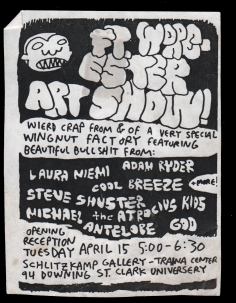 FT
WORE-
STER
ART SHOW!
WIERD CRAP FROM & OF A VERY SPECIAL
WINGNUT FACTORY FEATURING
BEAUTIFUL BULLSHIT FROM:
LAURA NIEMI ADAM RYDER
COOL BREEZE +MORE!
STEVE SHUSTER
MICHAEL the ATROCIUS KIDS
ANTELOBE GOD
OPENING
RECEPTION
TUESDAY APRIL 15 5:00-6:30
SCHLITZKAMP GALLERY - TRAINA CENTER
94 DOWNING ST. CLARK UNIVERSERY